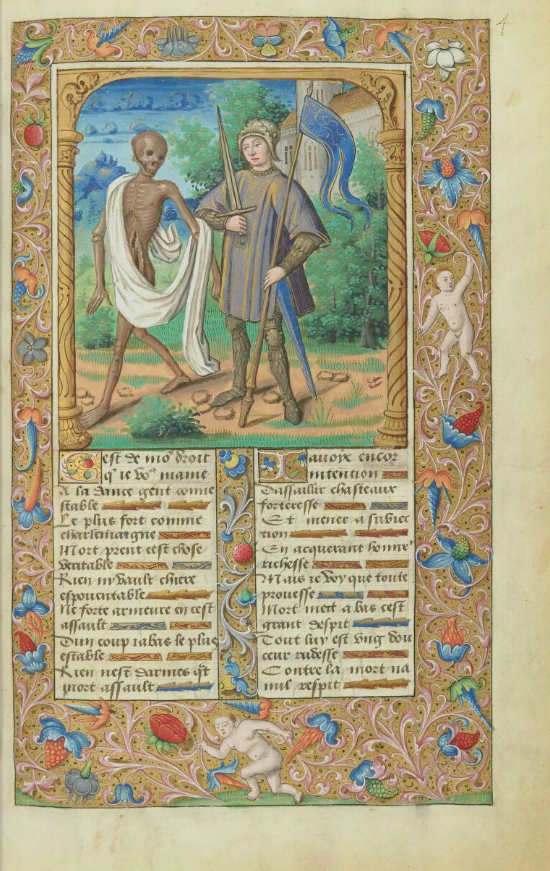 4
Cest de mō droit
q̄ ie voꝰ maine
A la dance gent conne
stable
Le plus fort comme
charlemaigne
Mort prent cest chose
veritable
Rien ny vault chiere
espouentable
Ne forte armeure en cest
assault
Dun coup iabas le plus
estable
Rien nest darmes qñt
mort assault
Jauoye encor
intention
Dassaillir chasteaux
forteresse
Et mener a subiec
tion
En acquerant honnr̄
richesse
Mais ie voy que toute
prouesse
Mort met a bas cest
grant despit
Tout luy est vng dou
ceur rudesse
Contre la mort na
nul respit